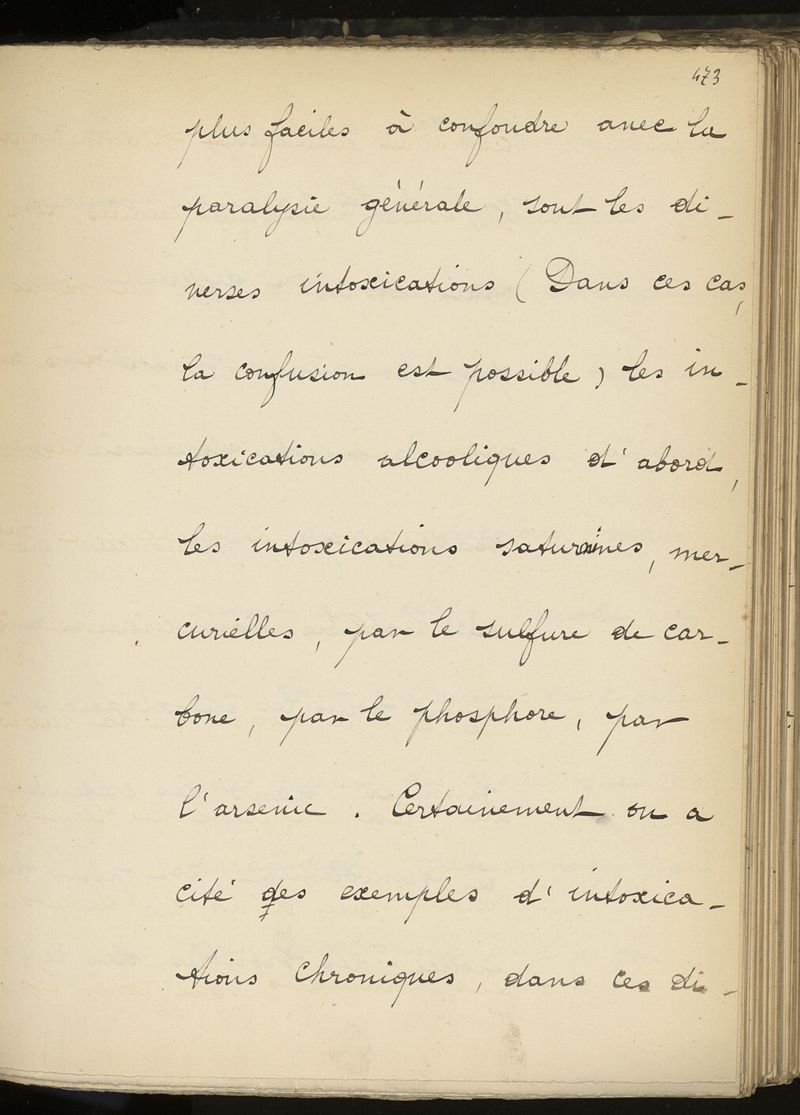 473
plus faciles à confondre avec la
paralysie générale, sont les di-
verses intoxications (Dans ces cas,
la confusion est possible) les in-
toxications alcooliques d'abord,
les intoxications saturnines, mer-
curielles, par le sulfure de car-
bone, par le phosphore, par
l'arsenic. Certainement on a
cité des exemples d'intoxica-
tions chroniques, dans ces di-